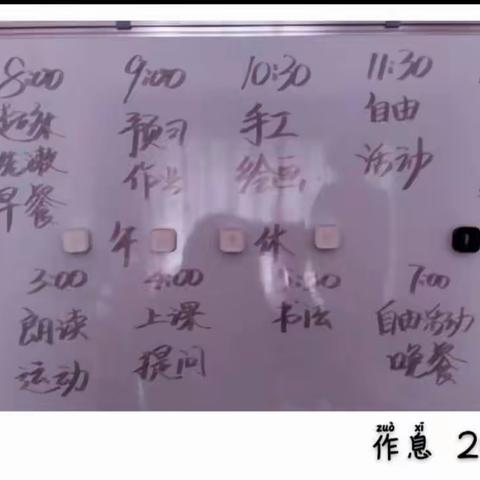 8:00 9:00 10:30 11:30
起床 预习 手工 自由
洗漱 作业 绘画 活动
早餐
午 休
3:00 4:00 7:00
朗读 上课 书法 自由活动
运动 提问 晚餐
zuò xī
作息 2